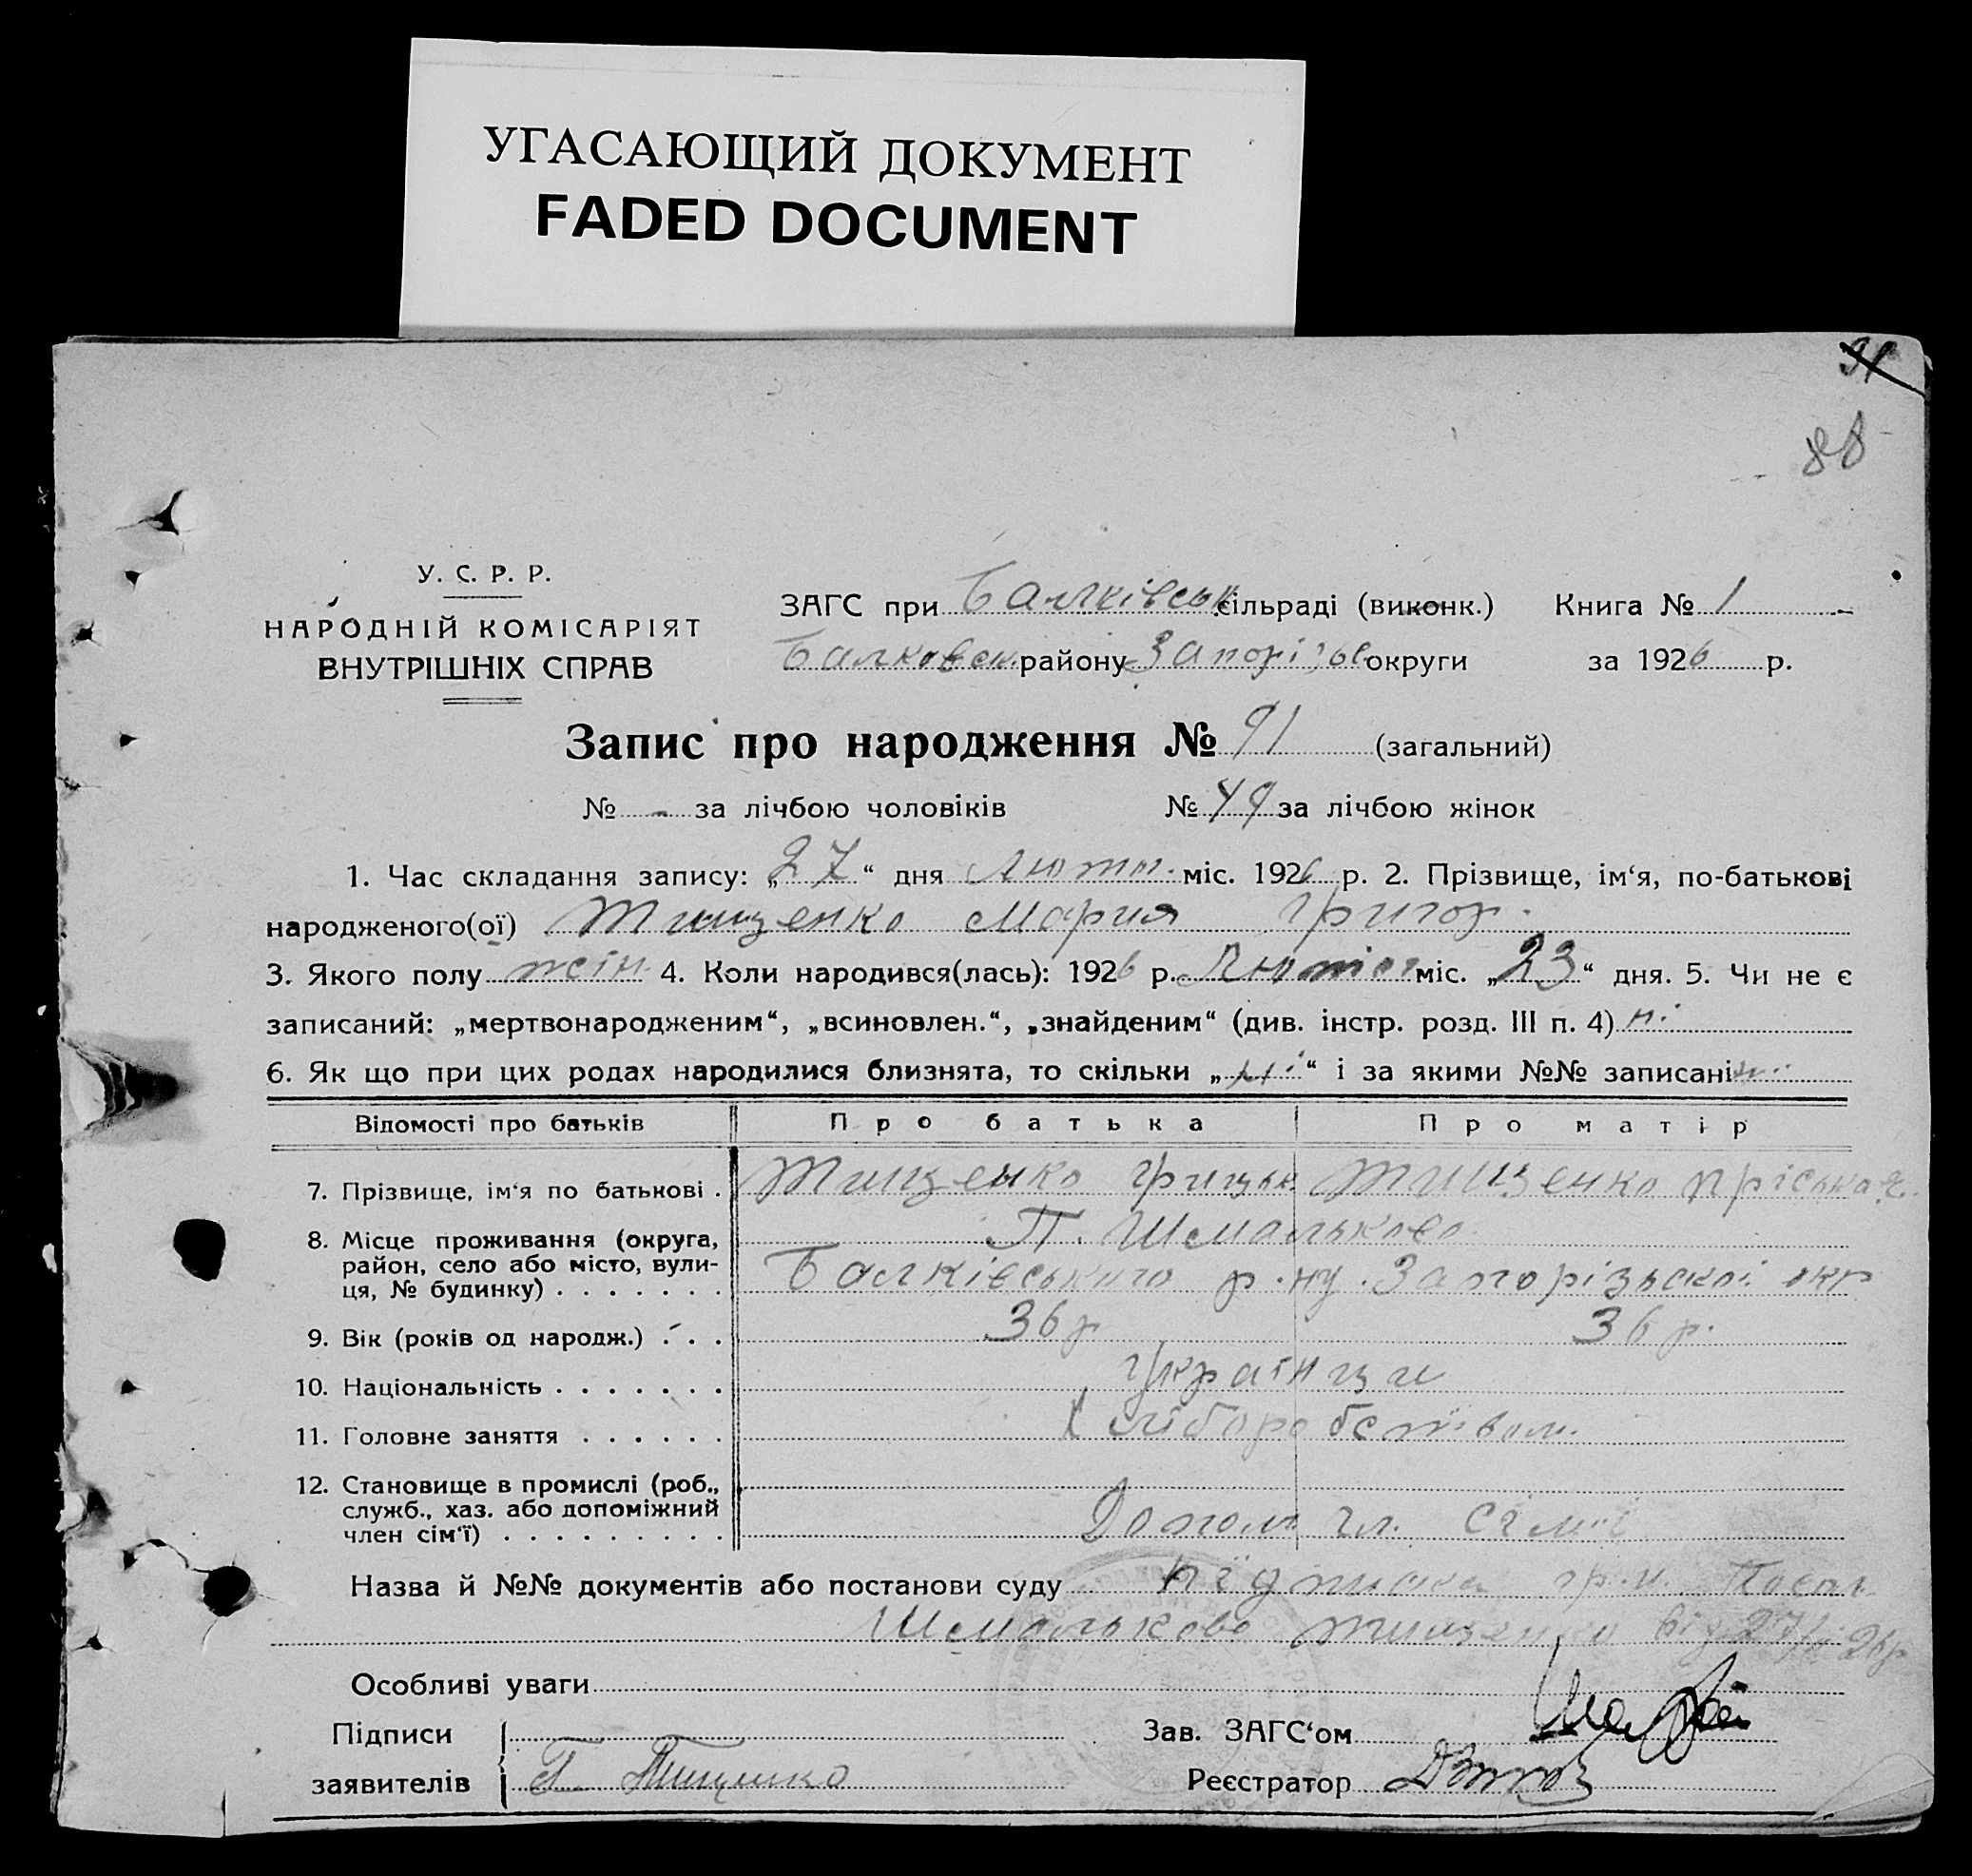 УГАСАЮЩИЙ ДОКУМЕНТ
FADED DOCUMENT
91
88
У. С. Р. Р.
НАРОДНІЙ КОМІСАРІЯТ
ВНУТРІШНІХ СПРАВ
ЗАГС при Балківськ сільраді (виконк.) Книга № 1
Балковск. району Запорізьк округи за 1926 р.
Запис про народження № 91 (загальний)
№ - за лічбою чоловіків № 49 за лічбою жінок
1. Час складання запису: „27“ дня Лютого міс. 1926 р. 2. Прізвище, ім‘я, по-батькові
народженого(ої) Тищенко Мария Григор.
3. Якого полу жін. 4. Коли народився(лась): 1926 р. Лютого міс. „23“ дня. 5. Чи не є
записаний: „мертвонародженим“, „всиновлен.“, „знайденим“ (див. інстр. розд. III п. 4) ні
6. Як що при цих родах народилися близнята, то скільки „ні“ і за якими №№ записані ні
Відомості про батьків Про батька Про матір
7. Прізвище, ім‘я по батькові . Тищенко Грицьк. Тищенко Пріська
8. Місце проживання (округа, П. Шмальково
район, село або місто, вули-
ця, № будинку) . . . . . . . Балківського р-ну Запорізьской окр
9. Вік (років од народж.) . . . 36 р 36 р.
10. Національність . . . . . . . Українци
11. Головне заняття . . . . . . Хліборобством.
12. Становище в промислі (роб.,
служб., хаз. або допоміжний
член сім‘ї) . . . . . . . . . Допом чл. сімї
Назва й №№ документів або постанови суду підписка гр-н. Посел.
Шмальково Тищенко від 27/II 26р
Особливі уваги
Підписи Зав. ЗАГС‘ом
заявителів Г. Тищенко Реєстратор